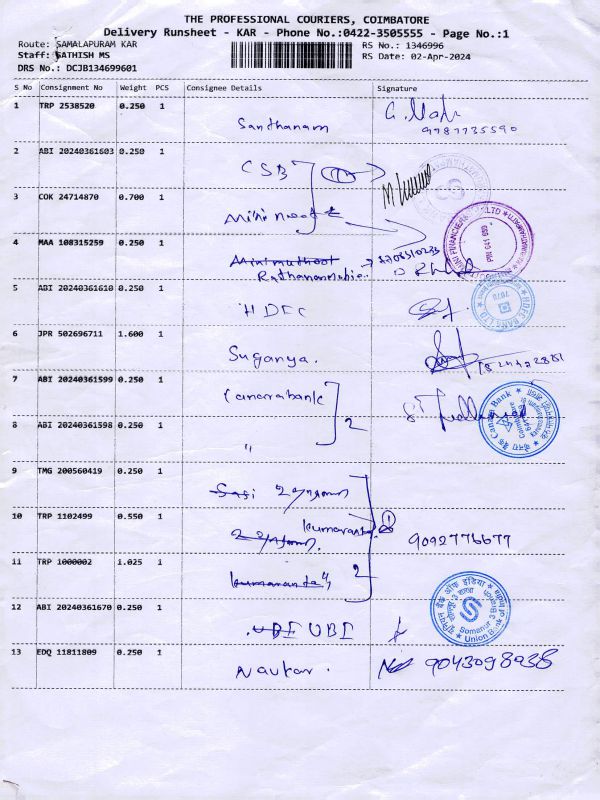 THE PROFESSIONAL COURIERS, COIMBATORE
Delivery Runsheet - KAR - Phone No.:0422-3505555 - Page No.:1
Route: SAMALAPURAM KAR
RS No.: 1346996
Staff: SATHISH MS
RS Date: 02-Apr-2024
DRS No.: DCJB134699601
S No Consignment No Weight PCS Consignee Details Signature
1 TRP 2538520 0.250 1 Santhanam
9787735590
2 ABI 20240361603 0.250 1 CSB
3 COK 24714870 0.700 1
4 MAA 108315259 0.250 1
5 ABI 20240361610 0.250 1 HDFC
6 JPR 502696711 1.600 1 Suganya.
7 ABI 20240361599 0.250 1 Canarabank
2
8 ABI 20240361598 0.250 1 "
9 TMG 200560419 0.250 1 Sasi
10 TRP 1102499 0.550 1
9092776677
11 TRP 1000002 1.025 1
2
12 ABI 20240361670 0.250 1 UBI
Union Bank
13 EDQ 11811809 0.250 1 Navkar. 9043098938